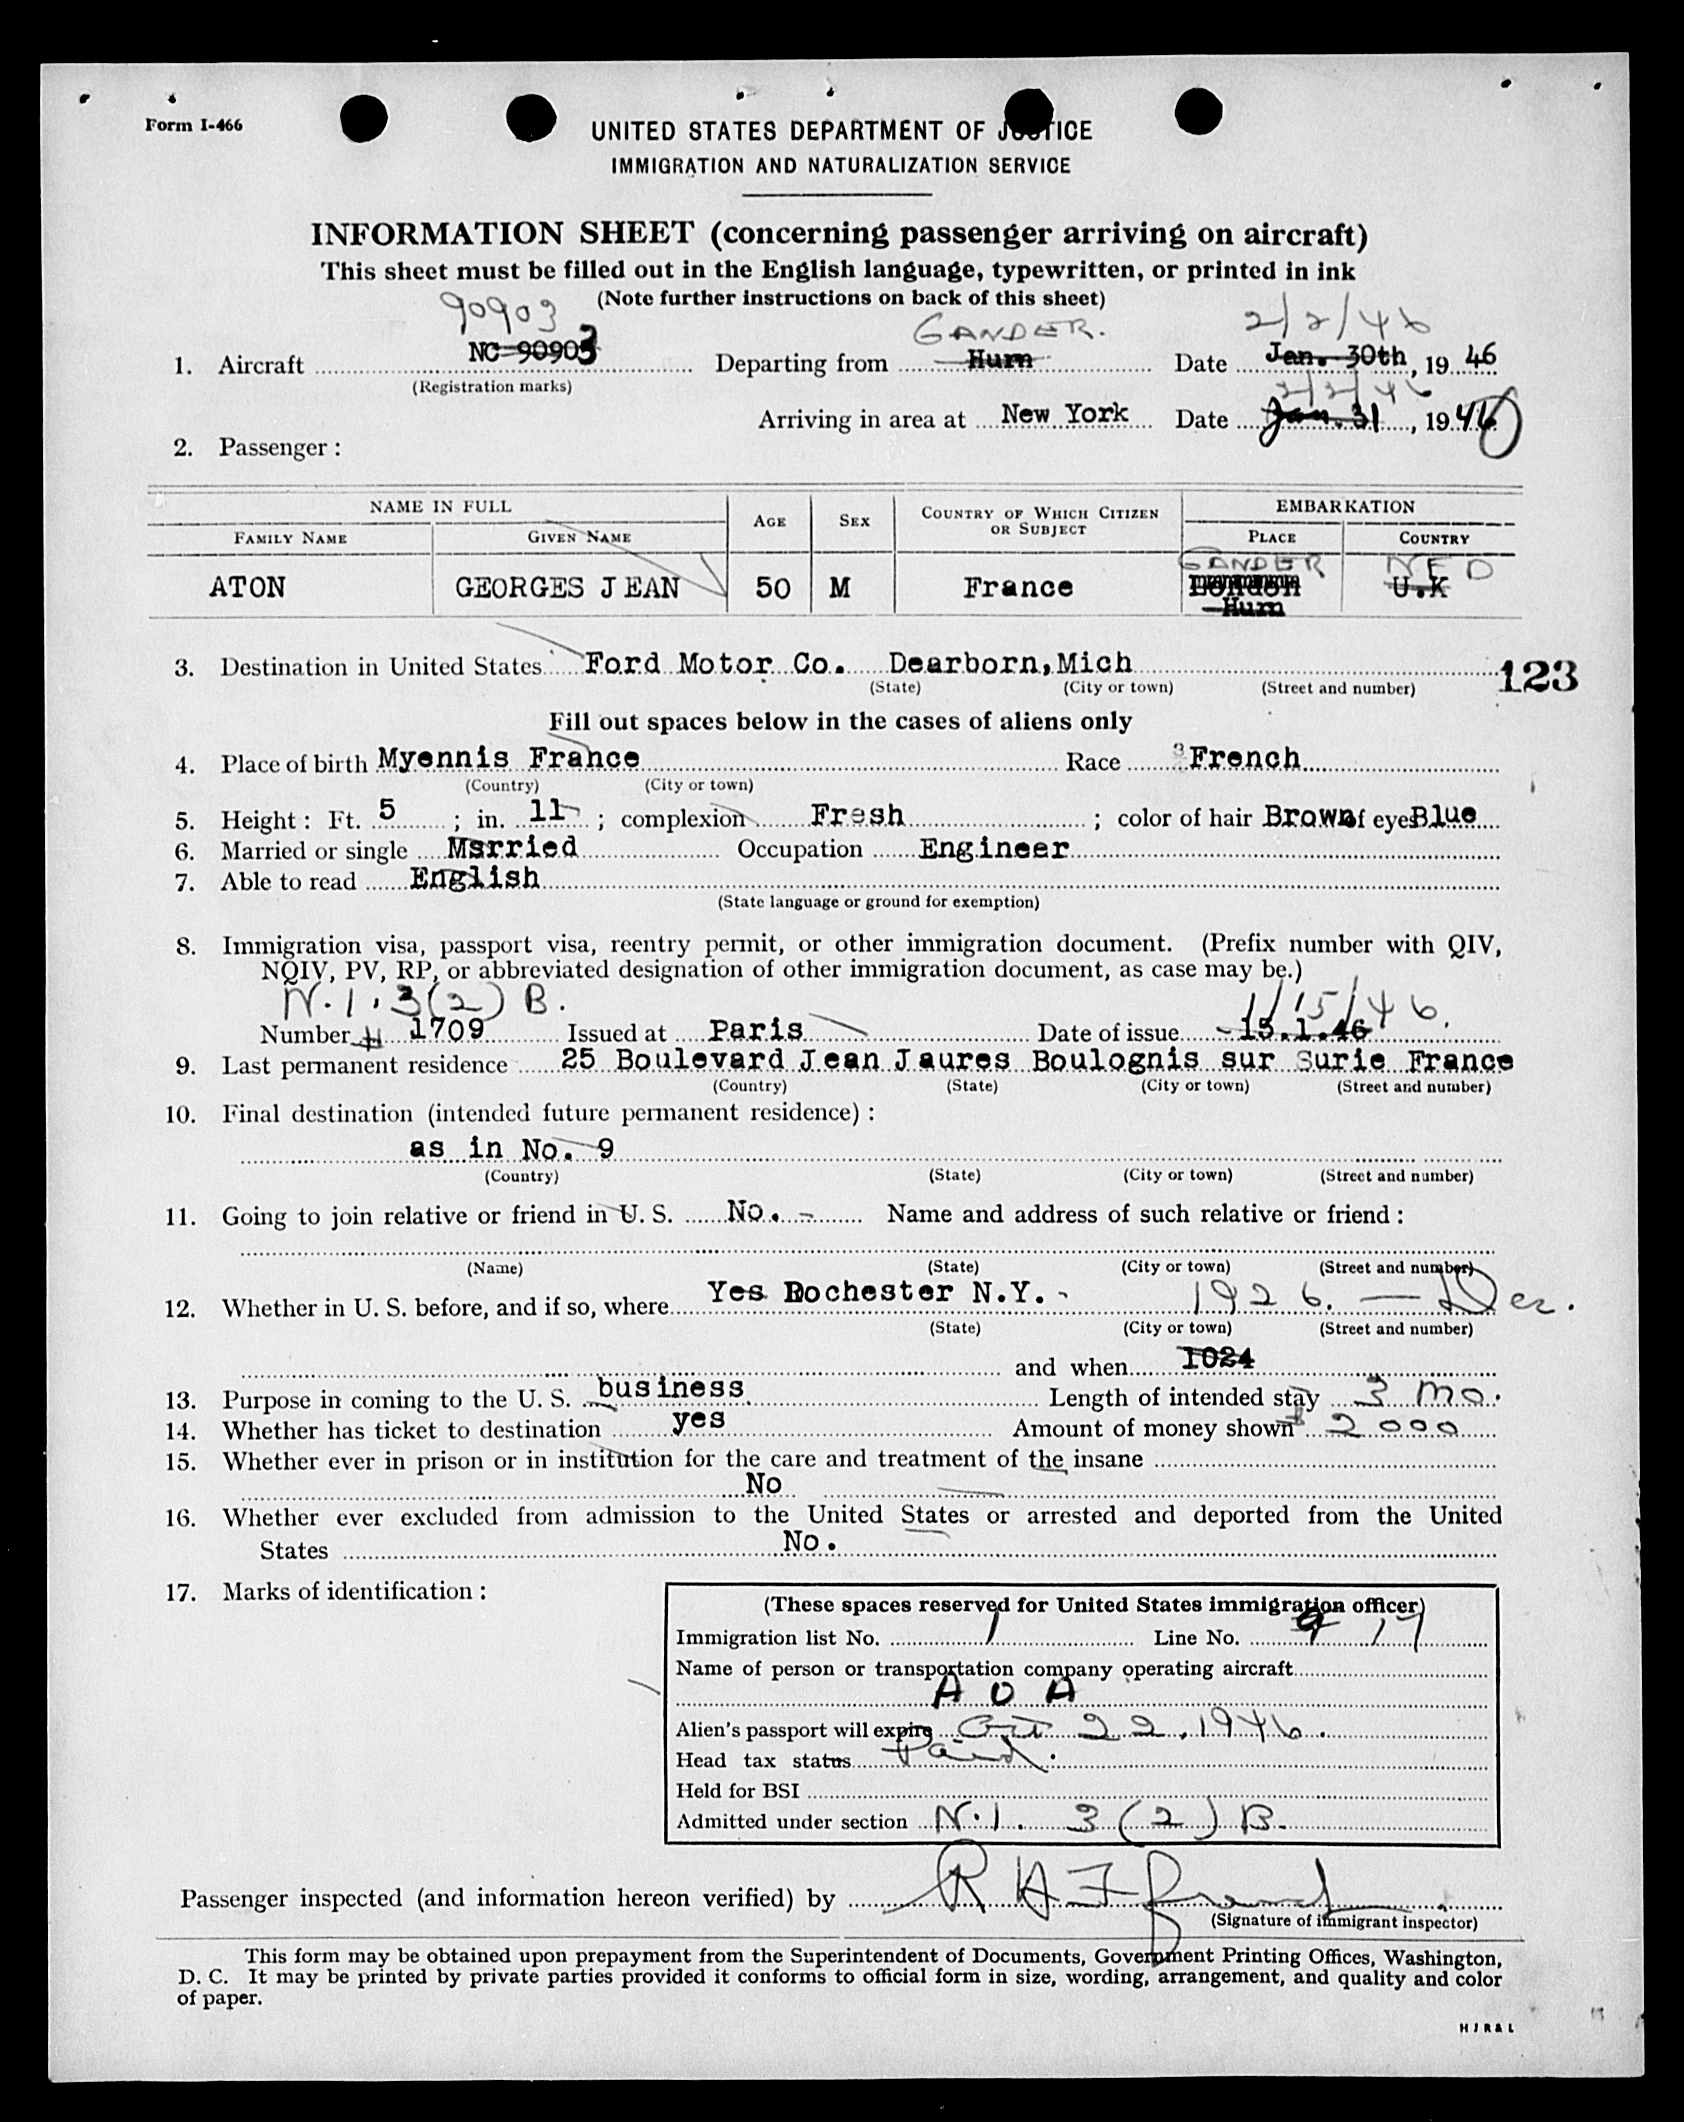 Form I-466
UNITED STATES DEPARTMENT OF JUSTICE
IMMIGRATION AND NATURALIZATION SERVICE
INFORMATION SHEET (concerning passenger arriving on aircraft)
This sheet must be filled out in the English language, typewritten, or printed in ink
(Note further instructions on back of this sheet)
90903 GANDER. 2/2/46
1. Aircraft NC-90903 Departing from Hurn Date Jan. 30th, 19 46
(Registration marks) 2/2/46
Arriving in area at New York Date Jan. 31, 19 46
2. Passenger :
NAME IN FULL AGE SEX COUNTRY OF WHICH CITIZEN OR SUBJECT EMBARKATION
FAMILY NAME GIVEN NAME PLACE COUNTRY
GANDER NFD
ATON GEORGES JEAN 50 M France London U.K
Hurn
3. Destination in United States Ford Motor Co. Dearborn, Mich 123
(State) (City or town) (Street and number)
Fill out spaces below in the cases of aliens only
4. Place of birth Myennis France Race 3 French
(Country) (City or town)
5. Height : Ft. 5 ; in. 11 ; complexion Fresh ; color of hair Brown of eyes Blue
6. Married or single Msrried Occupation Engineer
7. Able to read English
(State language or ground for exemption)
8. Immigration visa, passport visa, reentry permit, or other immigration document. (Prefix number with QIV,
NQIV, PV, RP, or abbreviated designation of other immigration document, as case may be.)
N.I. 3(2) B. 1/15/46.
Number # 1709 Issued at Paris Date of issue 15.1.46
9. Last permanent residence 25 Boulevard Jean Jaures Boulognis sur Surie France
(Country) (State) (City or town) (Street and number)
10. Final destination (intended future permanent residence) :
as in No. 9
(Country) (State) (City or town) (Street and number)
11. Going to join relative or friend in U. S. No. - Name and address of such relative or friend :
(Name) (State) (City or town) (Street and number)
12. Whether in U. S. before, and if so, where Yes Rochester N.Y. - 1926. — Dec.
(State) (City or town) (Street and number)
and when 1024
13. Purpose in coming to the U. S. business Length of intended stay 3 mo.
14. Whether has ticket to destination yes Amount of money shown $ 2000
15. Whether ever in prison or in institution for the care and treatment of the insane
No
16. Whether ever excluded from admission to the United States or arrested and deported from the United
States No.
17. Marks of identification :
(These spaces reserved for United States immigration officer)
Immigration list No. 1 Line No. 9 17
Name of person or transportation company operating aircraft
A O A
Alien's passport will expire Oct 22, 1946.
Head tax status Paid.
Held for BSI
Admitted under section N.I. 3 (2) B.
Passenger inspected (and information hereon verified) by
(Signature of immigrant inspector)
This form may be obtained upon prepayment from the Superintendent of Documents, Government Printing Offices, Washington,
D. C. It may be printed by private parties provided it conforms to official form in size, wording, arrangement, and quality and color
of paper.
HJR&L